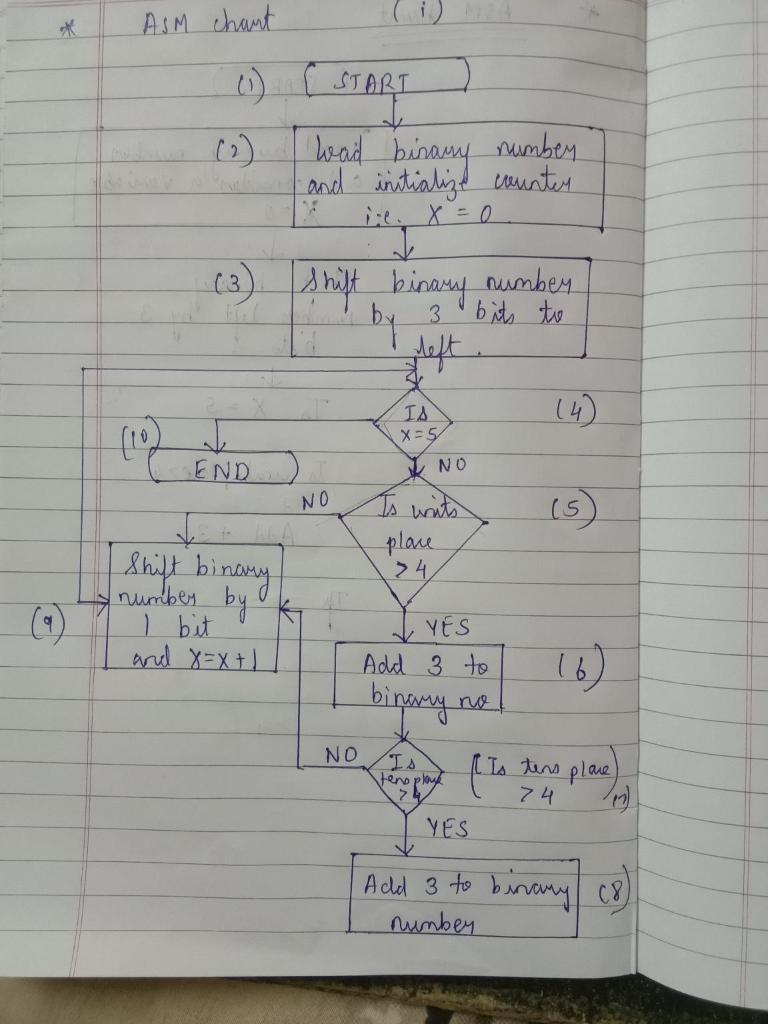 * ASM chart (i)
(1) START
(2) Load binary number
and initialize counter
i.e. X = 0.
(3) Shift binary number
by 3 bits to
left.
Is
x=5
(4)
(10)
END
NO
NO
Is units
place
> 4
(5)
Shift binary
number by
1 bit
and X=X+1
(9)
YES
Add 3 to
binary no
(6)
NO
Is
tens place
> 4
[Is tens place)
> 4 (7)
YES
Add 3 to binary
number
(8)